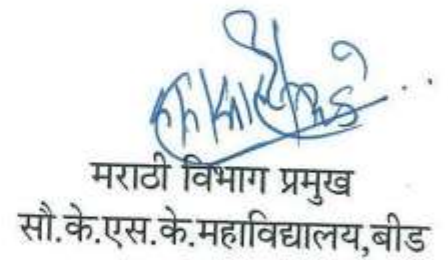 मराठी विभाग प्रमुख
सौ.के.एस.के.महाविद्यालय,बीड